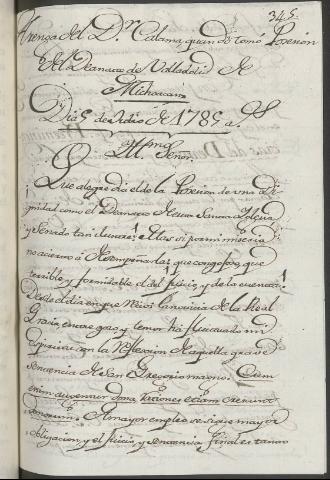 345.
Arenga del Dr. Calama, quando tomó Posesión
del Deanato de Valladolid de
Michoacan
Dia 5 de Julio de 1785 as.
Illmo. Señor.
Que alegre dia el de la Posesion de una Di
gnidad como el Deanato de una Santa Iglesia
y Senado tan
no acierto a desempeñarlas que congojoso, que
terrible y formidable el del Juicio, y de la cuenta!
Desde el dia en que Canonica de la Real
Gracia, entre gozo y temor ha fluctuado mi
con la reflexion de aquella grave
sentencia de San Gregorio magno. Cum
enim augentur dona, rationes etiam crescunt
donorum. A mayor empleo se sigue mayor
obligacion, y el Juicio, y sentencia final es tanto